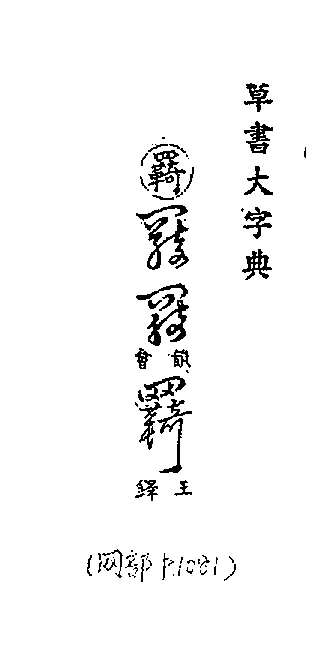 草書大字典
羇
羇
羇
羇
王鐸
(网部 p.1081)